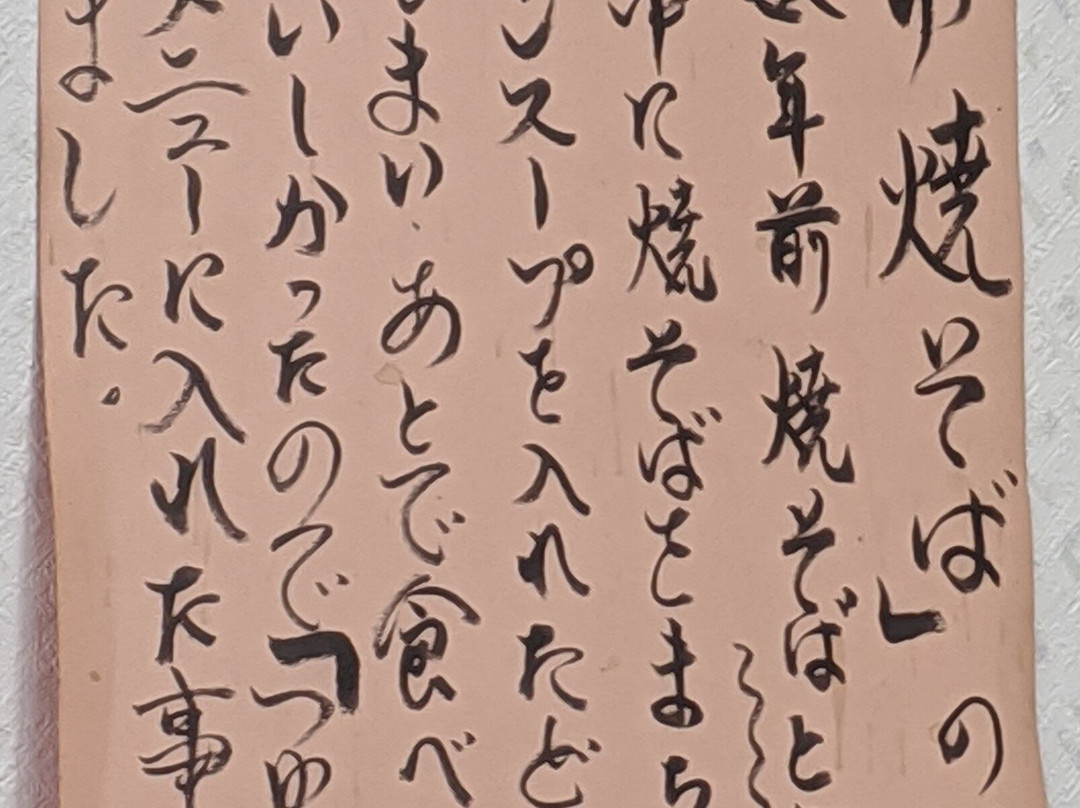 焼そば」の
年前 焼そばと
に焼そばとまち
ンスープを入れたど
まい、あとで食べ
いしかったので「つゆ
メニューに入れた事
ました。